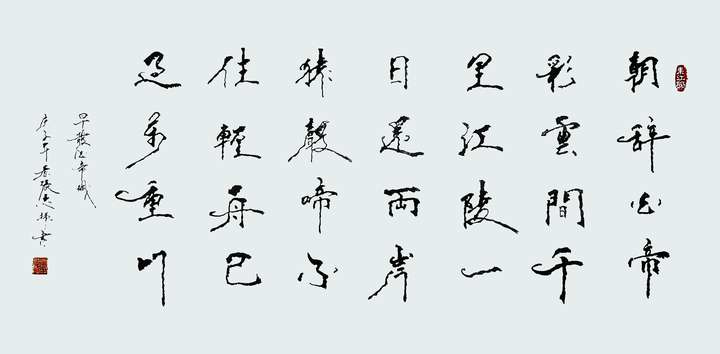 朝辞白帝
彩雲間千
里江陵一
日還两岸
猿聲啼不
住輕舟已
過萬重山
早發白帝城
庚子年春張林書